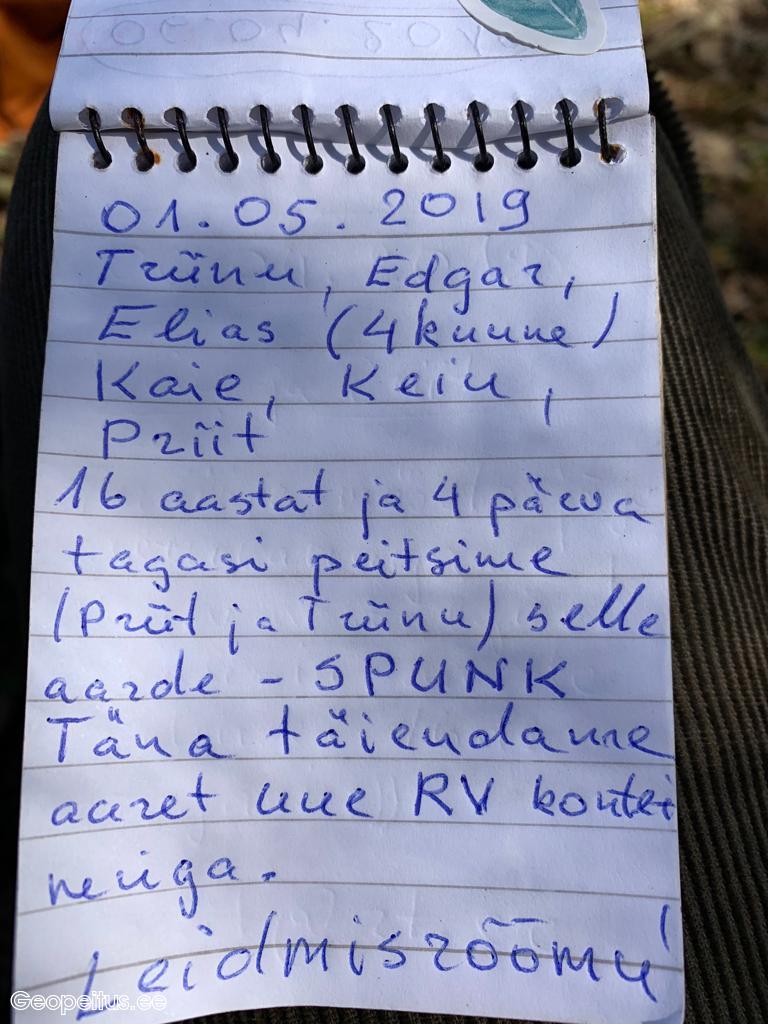 01.05.2019
Triinu, Edgar,
Elias (4 kuune)
Kaie, Keiu,
Priit
16 aastat ja 4 päeva
tagasi peitsime
(Priit ja Triinu) selle
aarde - SPUNK
Täna täiendame
aaret uue RV kontei
neriga.
Leidmisrõõmu!
Geopeitus.ee